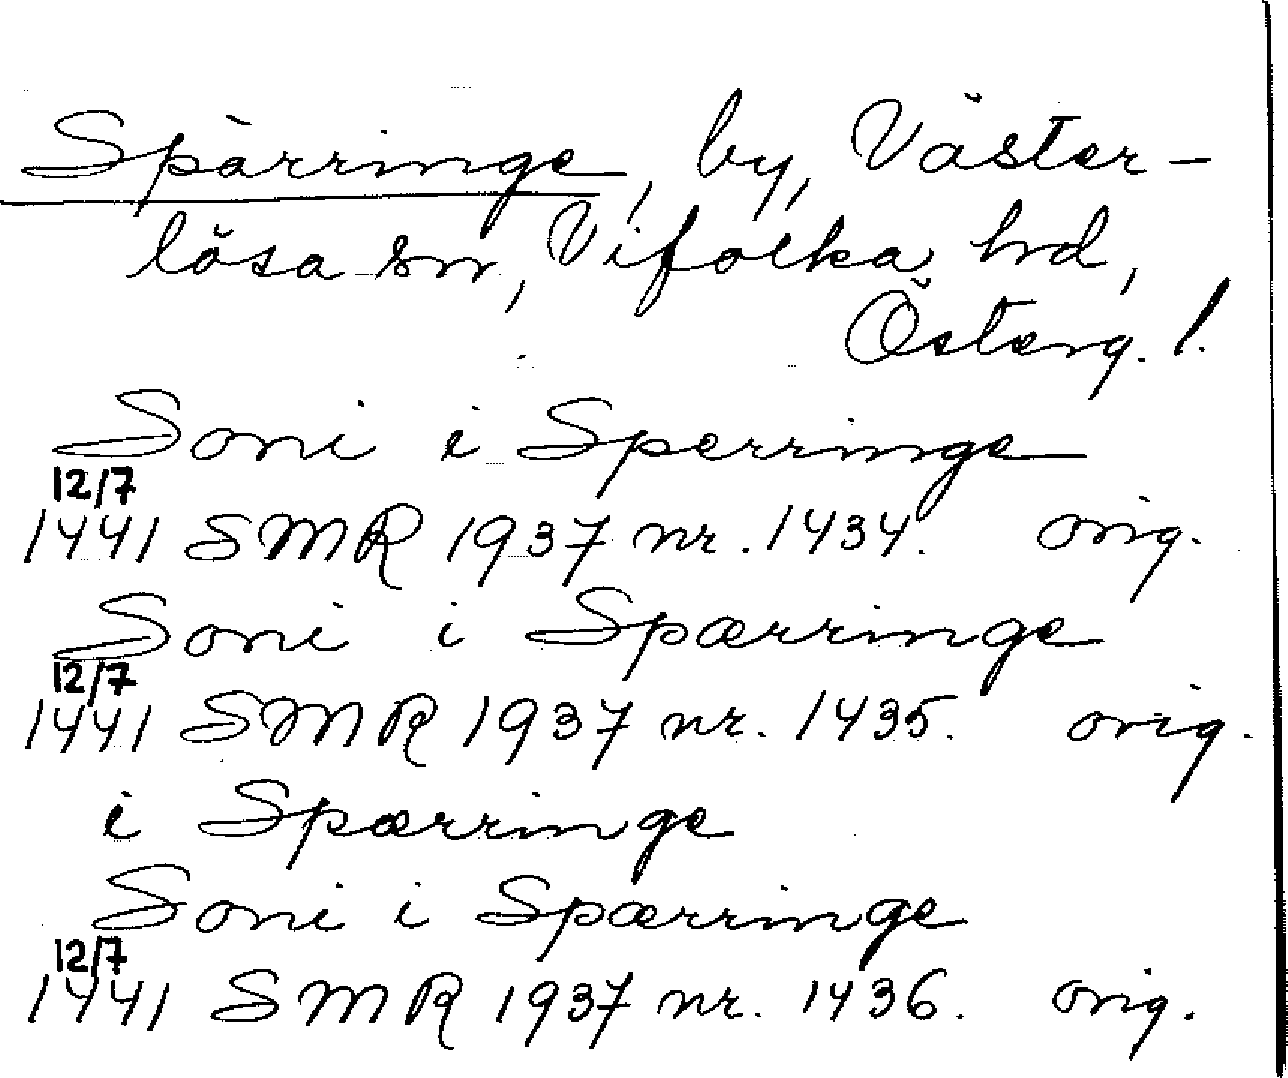 Spärringe, by, Väster-
lösa sn, Vifolka hd,
Österg. l.
Soni i Sperringe
12/7
1441 SMR 1937 nr. 1434. orig.
Soni i Spærringe
12/7
1441 SMR 1937 nr. 1435. orig.
i Spærringe
Soni i Spærringe
12/7
1441 SMR 1937 nr. 1436. orig.